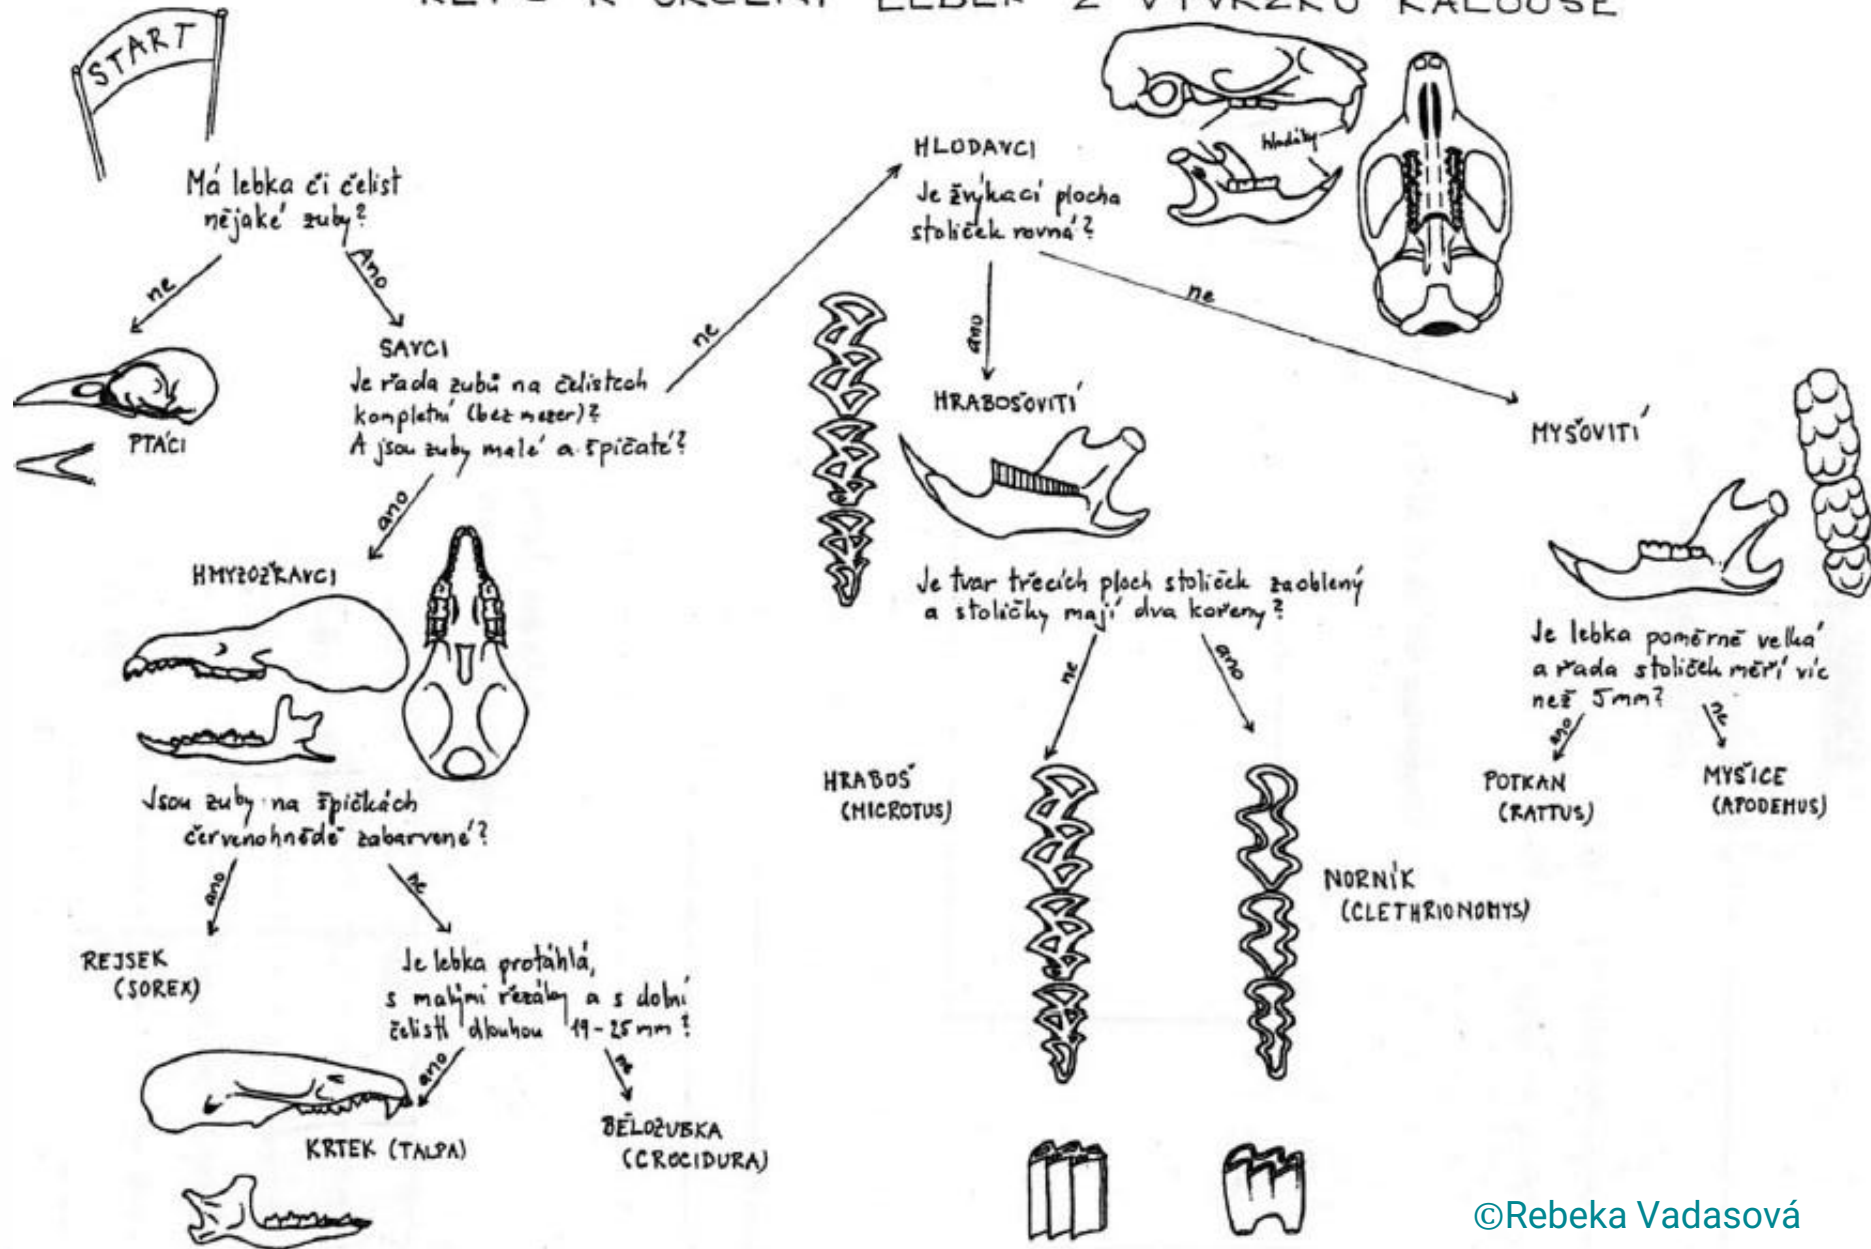 K URČENÍ LEBEK Z VÝVRŽKŮ KALOUSE
START
Má lebka či čelist
nějaké zuby?
ne
Ano
PTÁCI
SAVCI
Je řada zubů na čelistech
kompletní (bez mezer)?
A jsou zuby malé a špičaté?
ne
ano
HMYZOŽRAVCI
Jsou zuby na špičkách
červenohnědě zabarvené?
ano
ne
REJSEK
(SOREX)
Je lebka protáhlá,
s malými řezáky a s dolní
čelistí dlouhou 19-25 mm?
ano
ne
KRTEK (TALPA)
BĚLOZUBKA
(CROCIDURA)
HLODAVCI
Je žvýkací plocha
stoliček rovná?
hlodáky
ano
ne
HRABOŠOVITÍ
Je tvar třecích ploch stoliček zaoblený
a stoličky mají dva kořeny?
ne
ano
HRABOŠ
(MICROTUS)
NORNÍK
(CLETHRIONOMYS)
MYŠOVITÍ
Je lebka poměrně velká
a řada stoliček měří víc
než 5mm?
ano
ne
POTKAN
(RATTUS)
MYŠICE
(APODEMUS)
©Rebeka Vadasová